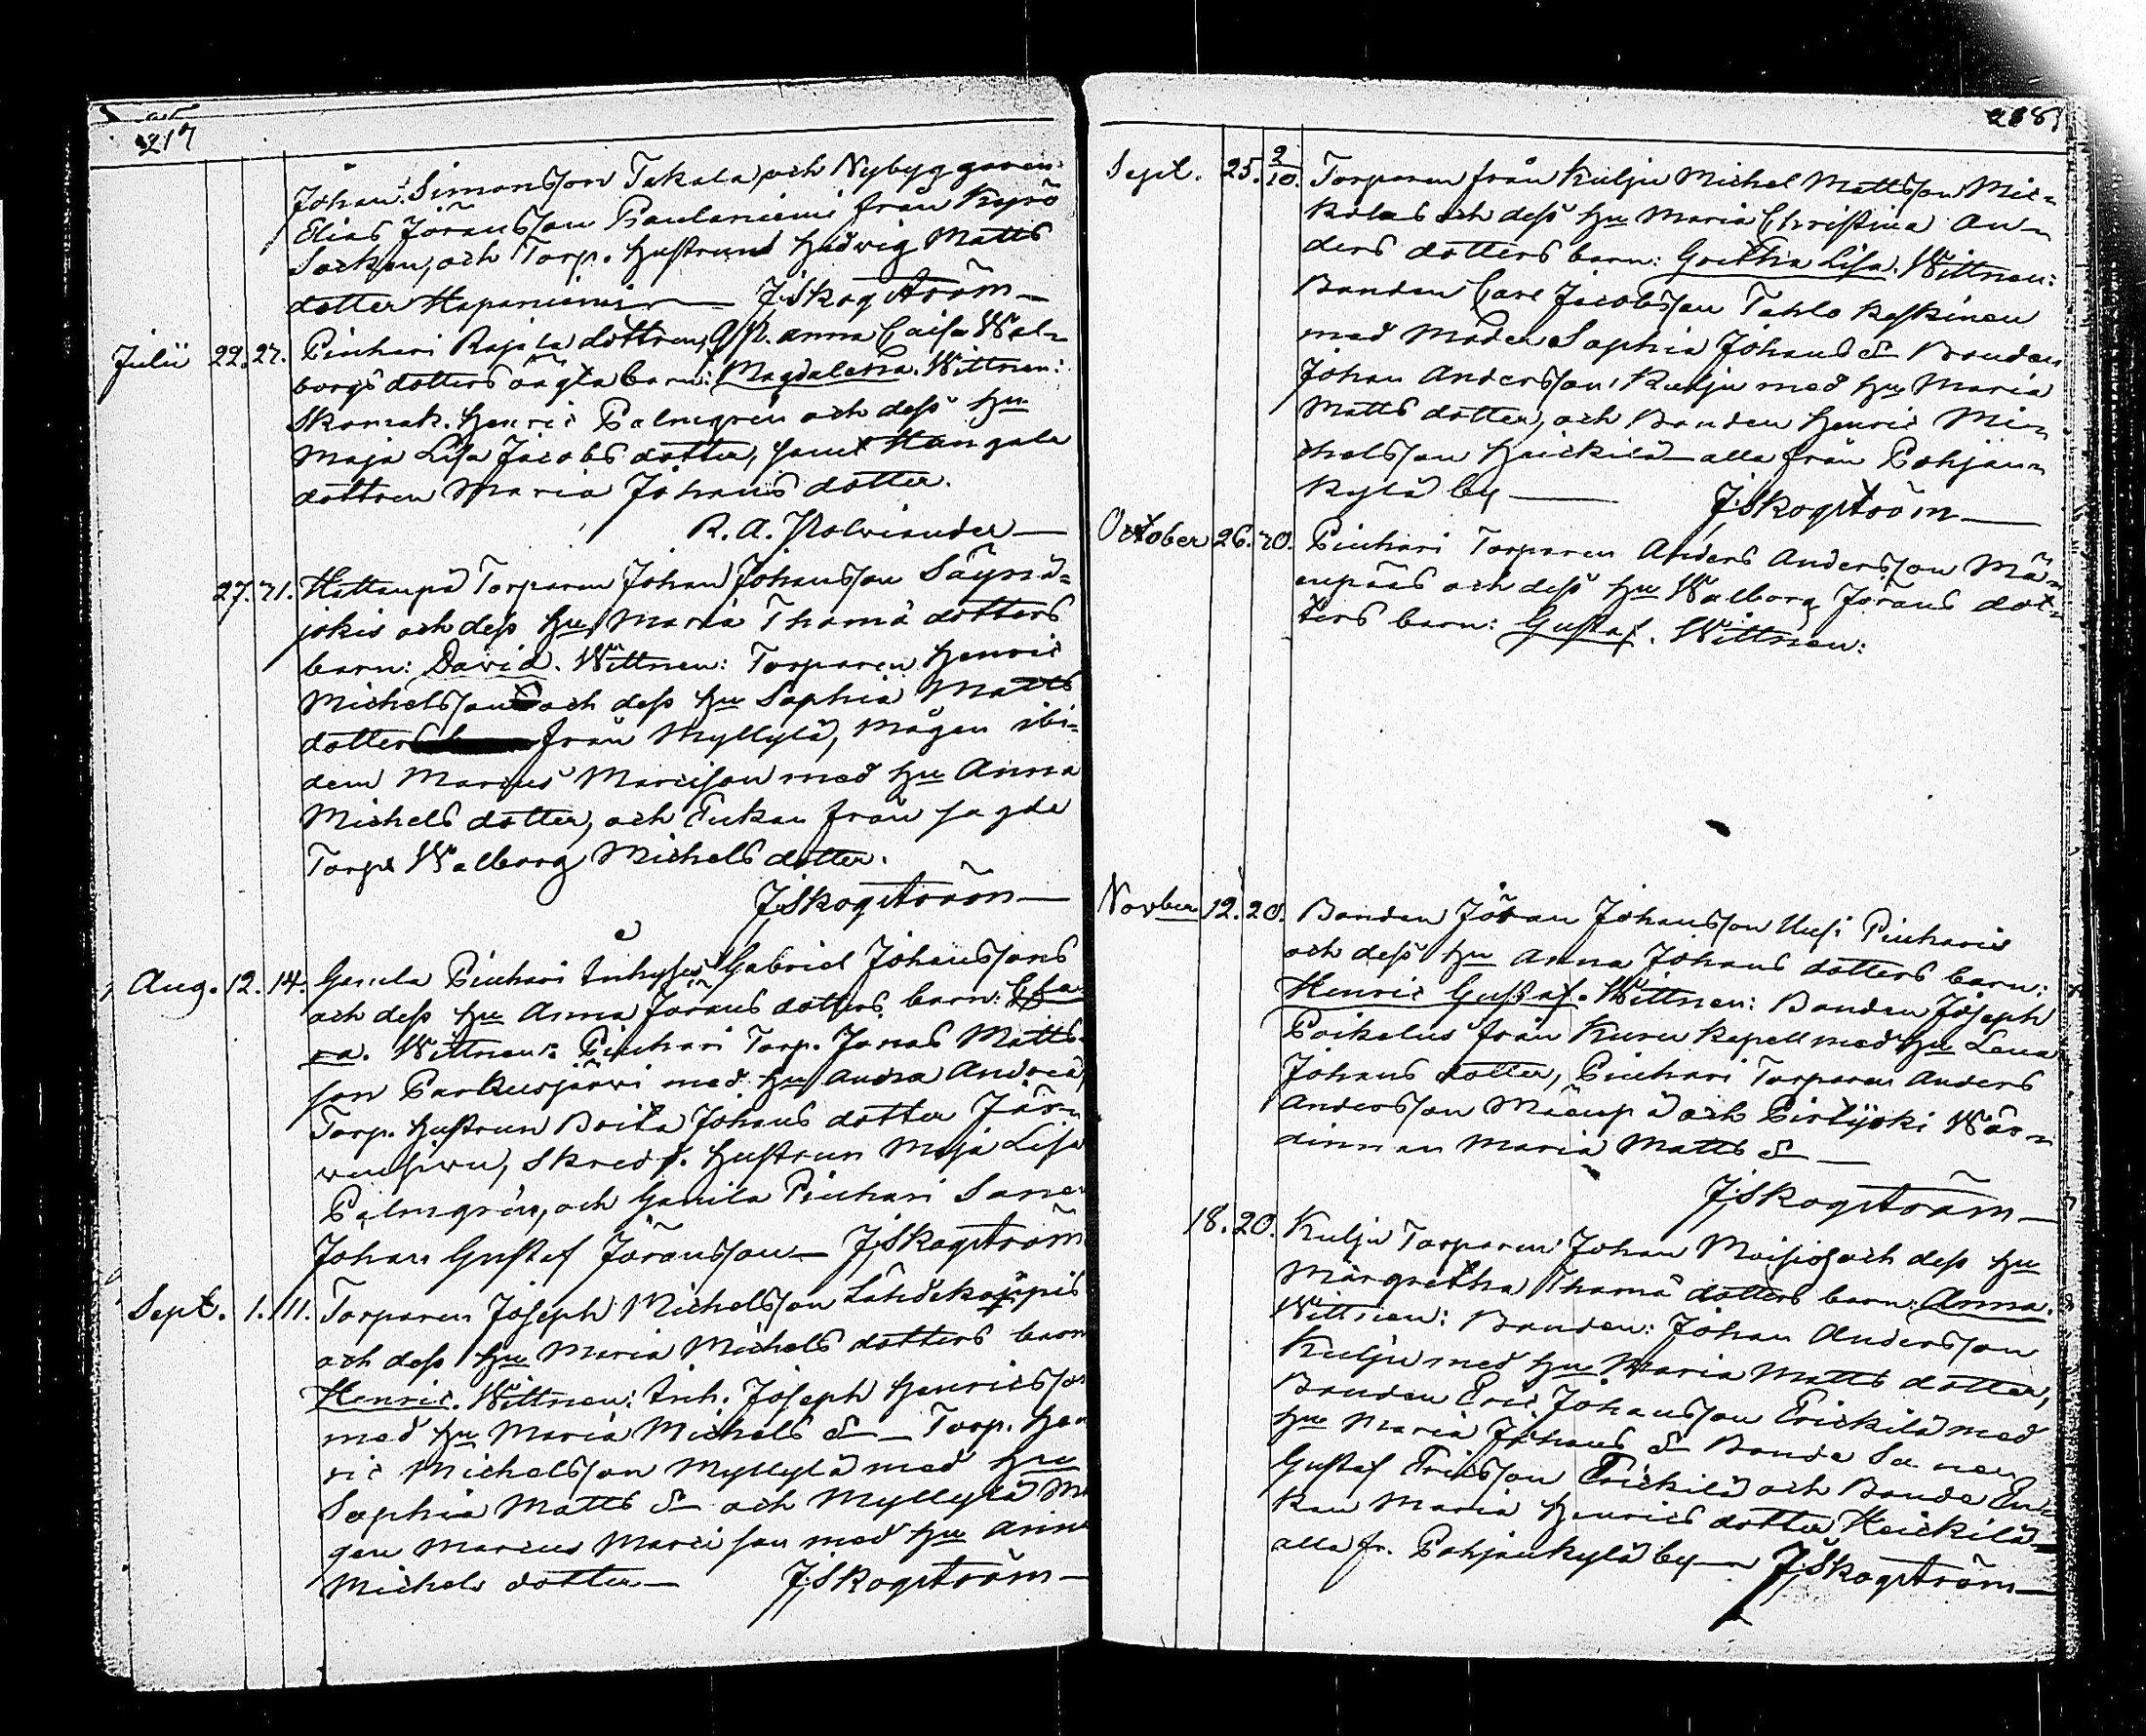 217
Johan Simonsson Takala och Nybyggaren
Elias Göransson Paulaniemi från Kyrö
Socken, och Torp. hustrun Hedvig Matts
dotter Hapaniemi — JSkogström —
Julii 22. 27. Pinhari Rajala dottren, Qsp. Anna Caisa Wal=
borgsdotters oägta barn: Magdalena. Wittnen:
Skomak. Henric Palmgren och dess hu
Maja Lisa Jacobs dotter, samt Kangala
dottren Maria Johans dotter.
R. A. Polviander —
27. 31. Hattanpä Torparen Johan Johansson Säynä=
jokis och dess hu Maria Thomä dotters
barn: David. Wittnen: Torparen Henric
Michelsson och dess hu Sophia Matts
dotter från Myllylä, Mågen ibi=
dem Marcus Marcisson med hu Anna
Michels dotter, och Enkan från sagde
Torp Walborg Michels dotter.
JSkogström —
Aug. 12. 14. Gamla Pinhari Inhyses Gabriel Johanssons
och dess hu Anna Jörans dotters barn:
Wittnen: Pinhari Torp. Jonas Matts
son Parkusjärvi med hu
Torp. hustrun Brita Johans dotter Jär=
vensivu, Skredd. hustrun Maja Lisa
Palmgrén, och Gamla Pinhari Sonen
Johan Gustaf Jöransson — JSkogström
Sept. 1. 11. Torparen Joseph Michelsson Lähdekorpis
och dess hu Maria Michels dotters barn
Henric. Wittnen: Inh. Joseph Henricsson
med hu Maria Michels dr — Torp. Hen
ric Michelsson Myllylä med hu
Sophia Matts dr och Myllylä Må
gen Marcus Marcisson med hu Anna
Michels dotter — JSkogström —
218
Sept. 25. 2/10. Torparen från Kulju Michel Mattsson Mic=
kolas och dess hu Maria Christina An=
ders dotters barn: Gretha Lisa. Wittnen:
Bonden Carl Jacobsson Tahlo Keskinen
med Modren Sophia Johans dr Bonden
Johan Andersson Kulju med hu Maria
Matts dotter, och Bonden Henric Mi=
chelsson Heickilä — alla från Pohjan=
kylä by — JSkogström —
October 26. 30. Pinhari Torparen Anders Andersson Mä=
enpääs och dess hu Walborg Jörans dot=
ters barn: Gustaf. Wittnen:
Novber 12. 20. Bonden Jöran Johansson Uusi Pinharis
och dess hu Anna Johans dotters barn:
Henric Gustaf. Wittnen: Bonden Joseph
Poikelus från Kuru Kapell med hu Lena
Johans dotter, Pinhari Torparen Anders
Andersson Mäenpä och Pirttjoki Wär=
dinnan Maria Matts dr —
JSkogström —
18. 20. Kulju Torparen Johan Moisios och dess hu
Margretha Thomä dotters barn: Anna.
Wittnen: Bonden: Johan Andersson
Kulju med hu Maria Matts dotter,
Bonden Eric Johansson Erickilä med
hu Maria Johans dr Bonde Sonen
Gustaf Ericsson Erickilä och Bonde En=
kan Maria Henrics dotter Heickilä —
alla fr. Pohjankylä by — JSkogström —